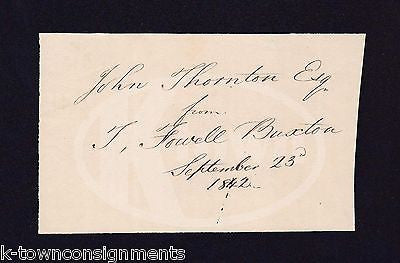 John Thornton Esq.
from
T. Fowell Buxton
September 23d
1842
k-townconsignments